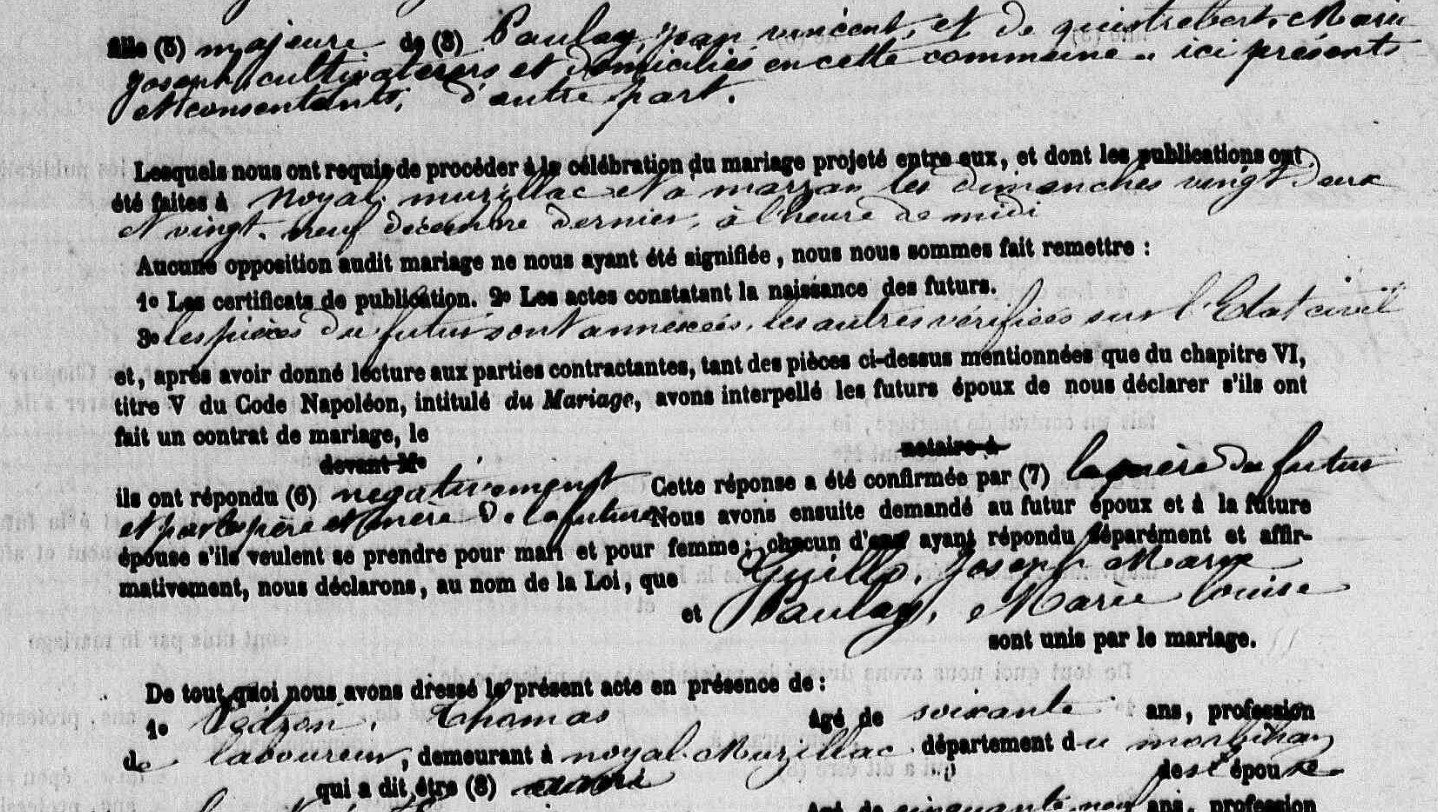 fille (5) majeure de (3) Paulay, jean vincent, et de quistrebert, Marie
joseph, cultivateurs et domiciliés en cette commune, ici présents
et consentants, d'autre part.
Lesquels nous ont requis de procéder à la célébration du mariage projeté entre eux, et dont les publications ont
été faites à noyal muzillac et à marzan les dimanches vingt deux
et vingt-neuf décembre dernier, à l'heure de midi
Aucune opposition audit mariage ne nous ayant été signifiée, nous nous sommes fait remettre :
1o Les certificats de publication. 2o Les actes constatant la naissance des futurs.
3o les pièces du futur sont annexées, les autres vérifiées sur l'Etat civil
et, après avoir donné lecture aux parties contractantes, tant des pièces ci-dessus mentionnées que du chapitre VI,
titre V du Code Napoléon, intitulé du Mariage, avons interpellé les futurs époux de nous déclarer s'ils ont
fait un contrat de mariage, le
devant Me notaire à
ils ont répondu (6) négativement Cette réponse a été confirmée par (7) la mère du futur
et par les père et mère de la future Nous avons ensuite demandé au futur époux et à la future
épouse s'ils veulent se prendre pour mari et pour femme ; chacun d'eux ayant répondu séparément et affir-
mativement, nous déclarons, au nom de la Loi, que Guillo, Joseph Marie
et Paulay, Marie louise
sont unis par le mariage.
De tout quoi nous avons dressé le présent acte en présence de :
1o Thomas âgé de soixante ans, profession
de laboureur, demeurant à noyal-Muzillac département du morbihan
qui a dit être (8) de l'épouse
âgé de cinquante neuf ans, profession